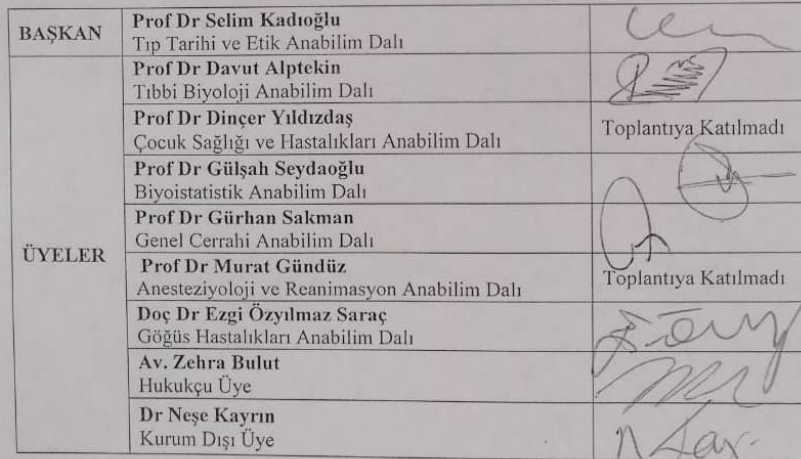 BAŞKAN
Prof Dr Selim Kadıoğlu
Tıp Tarihi ve Etik Anabilim Dalı
ÜYELER
Prof Dr Davut Alptekin
Tıbbi Biyoloji Anabilim Dalı
Prof Dr Dinçer Yıldızdaş
Çocuk Sağlığı ve Hastalıkları Anabilim Dalı
Toplantıya Katılmadı
Prof Dr Gülşah Seydaoğlu
Biyoistatistik Anabilim Dalı
Prof Dr Gürhan Sakman
Genel Cerrahi Anabilim Dalı
Prof Dr Murat Gündüz
Anesteziyoloji ve Reanimasyon Anabilim Dalı
Toplantıya Katılmadı
Doç Dr Ezgi Özyılmaz Saraç
Göğüs Hastalıkları Anabilim Dalı
Av. Zehra Bulut
Hukukçu Üye
Dr Neşe Kayrın
Kurum Dışı Üye